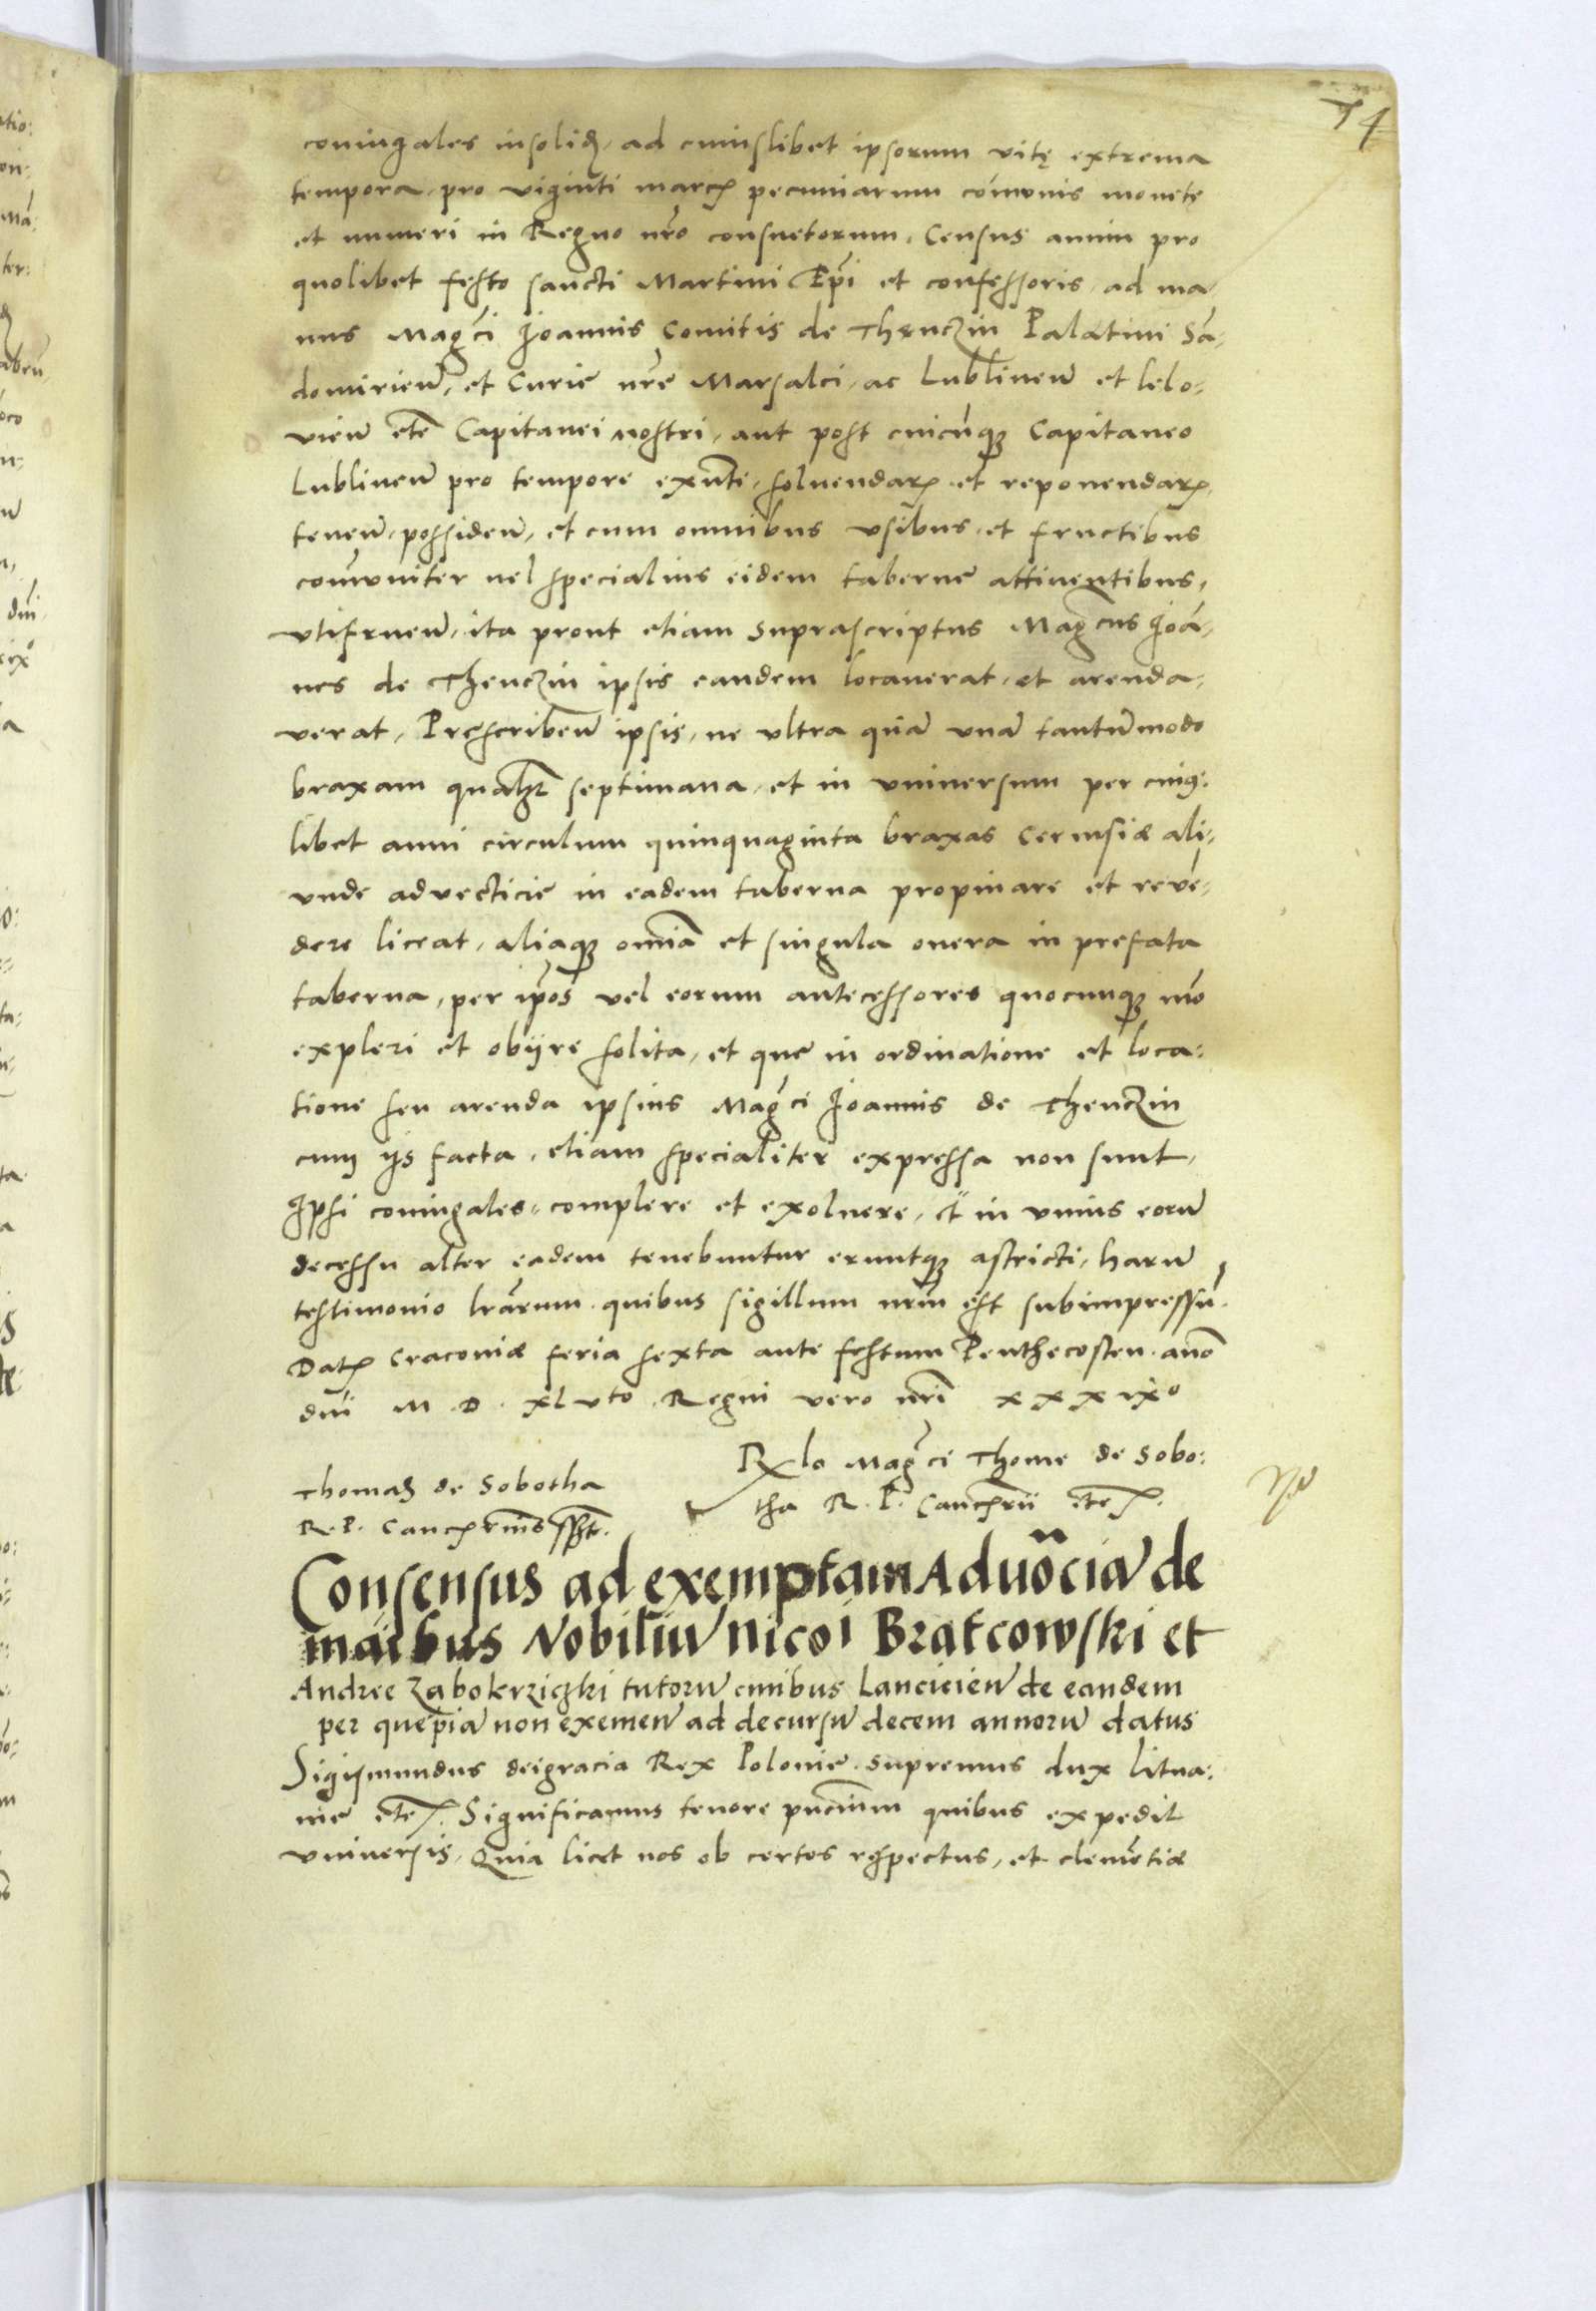 74
coniugales insolid, ad cuiuslibet ipsorum vitę extrema
tempora, pro viginti marcis pecuniarum comunis monete
et numeri in Regno nro consuetorum, Census annui pro
quolibet festo sancti Martini Epi et confessoris, ad ma,
nus Magci Joannis Comitis de Thenczin Palatini Sa,
domirien, et Curie nre Marsalci, ac Lublinen et lelo,
vien etc Capitanei nostri, aut post cuicunq Capitaneo
Lublinen pro tempore exnti, soluendar et reponendar,
tenen, possiden, et cum omnibus vsibus, et fructibus
comuniter uel specialius eidem taberne attinentibus,
vtifruen, ita prout etiam suprascriptus Magcus Joa,
nes de Thenczin ipsis eandem locauerat, et arenda,
verat, Prescriben ipsis, ne vltra qua vna tantummodo
braxam qualibet septimana, et in vniuersum per cuius,
libet anni circulum quinquaginta braxas Ceruisiæ ali,
vnde advecticie in eadem taberna propinare et reve,
dere liceat, aliaq omia et singula onera in prefata
taberna, per ipos vel eorum antecessores quocunq mo
expleri et obijre solita, et que in ordinatione et loca,
tione seu arenda ipsius Magci Joannis de Thenczin
cum ijs facta, etiam specialiter expressa non sunt,
Ipsi coniugales, complere et exoluere, et in vnius eoru
decessu alter eadem tenebuntur eruntq astricti, haru
testimonio lrarum, quibus sigillum nrm est subimpressu.
Dat Cracoviæ feria sexta ante festum Penthecosten, anno
dni M . D . XLvto . Regni vero nri xxxixo
Thomas de Sobotha
R. P. Cancrius sst.
Rlo Magci Thome de Sobo:
tha R. P. Cancrii etc.
Consensus ad exemptam Aduocia de
maibus Nobiliu Nicoi Bratcowski et
Andree Zabokrziczki tutoru ciuibus Lancicien de eandem
per quepia non exemen ad decursu decem annoru datus
Sigismundus deigracia Rex Polonie . supremus dux Litua,
nie etc. Significamus tenore pncium quibus expedit
vniuersis, Quia licet nos ob certos respectus, et clementiæ